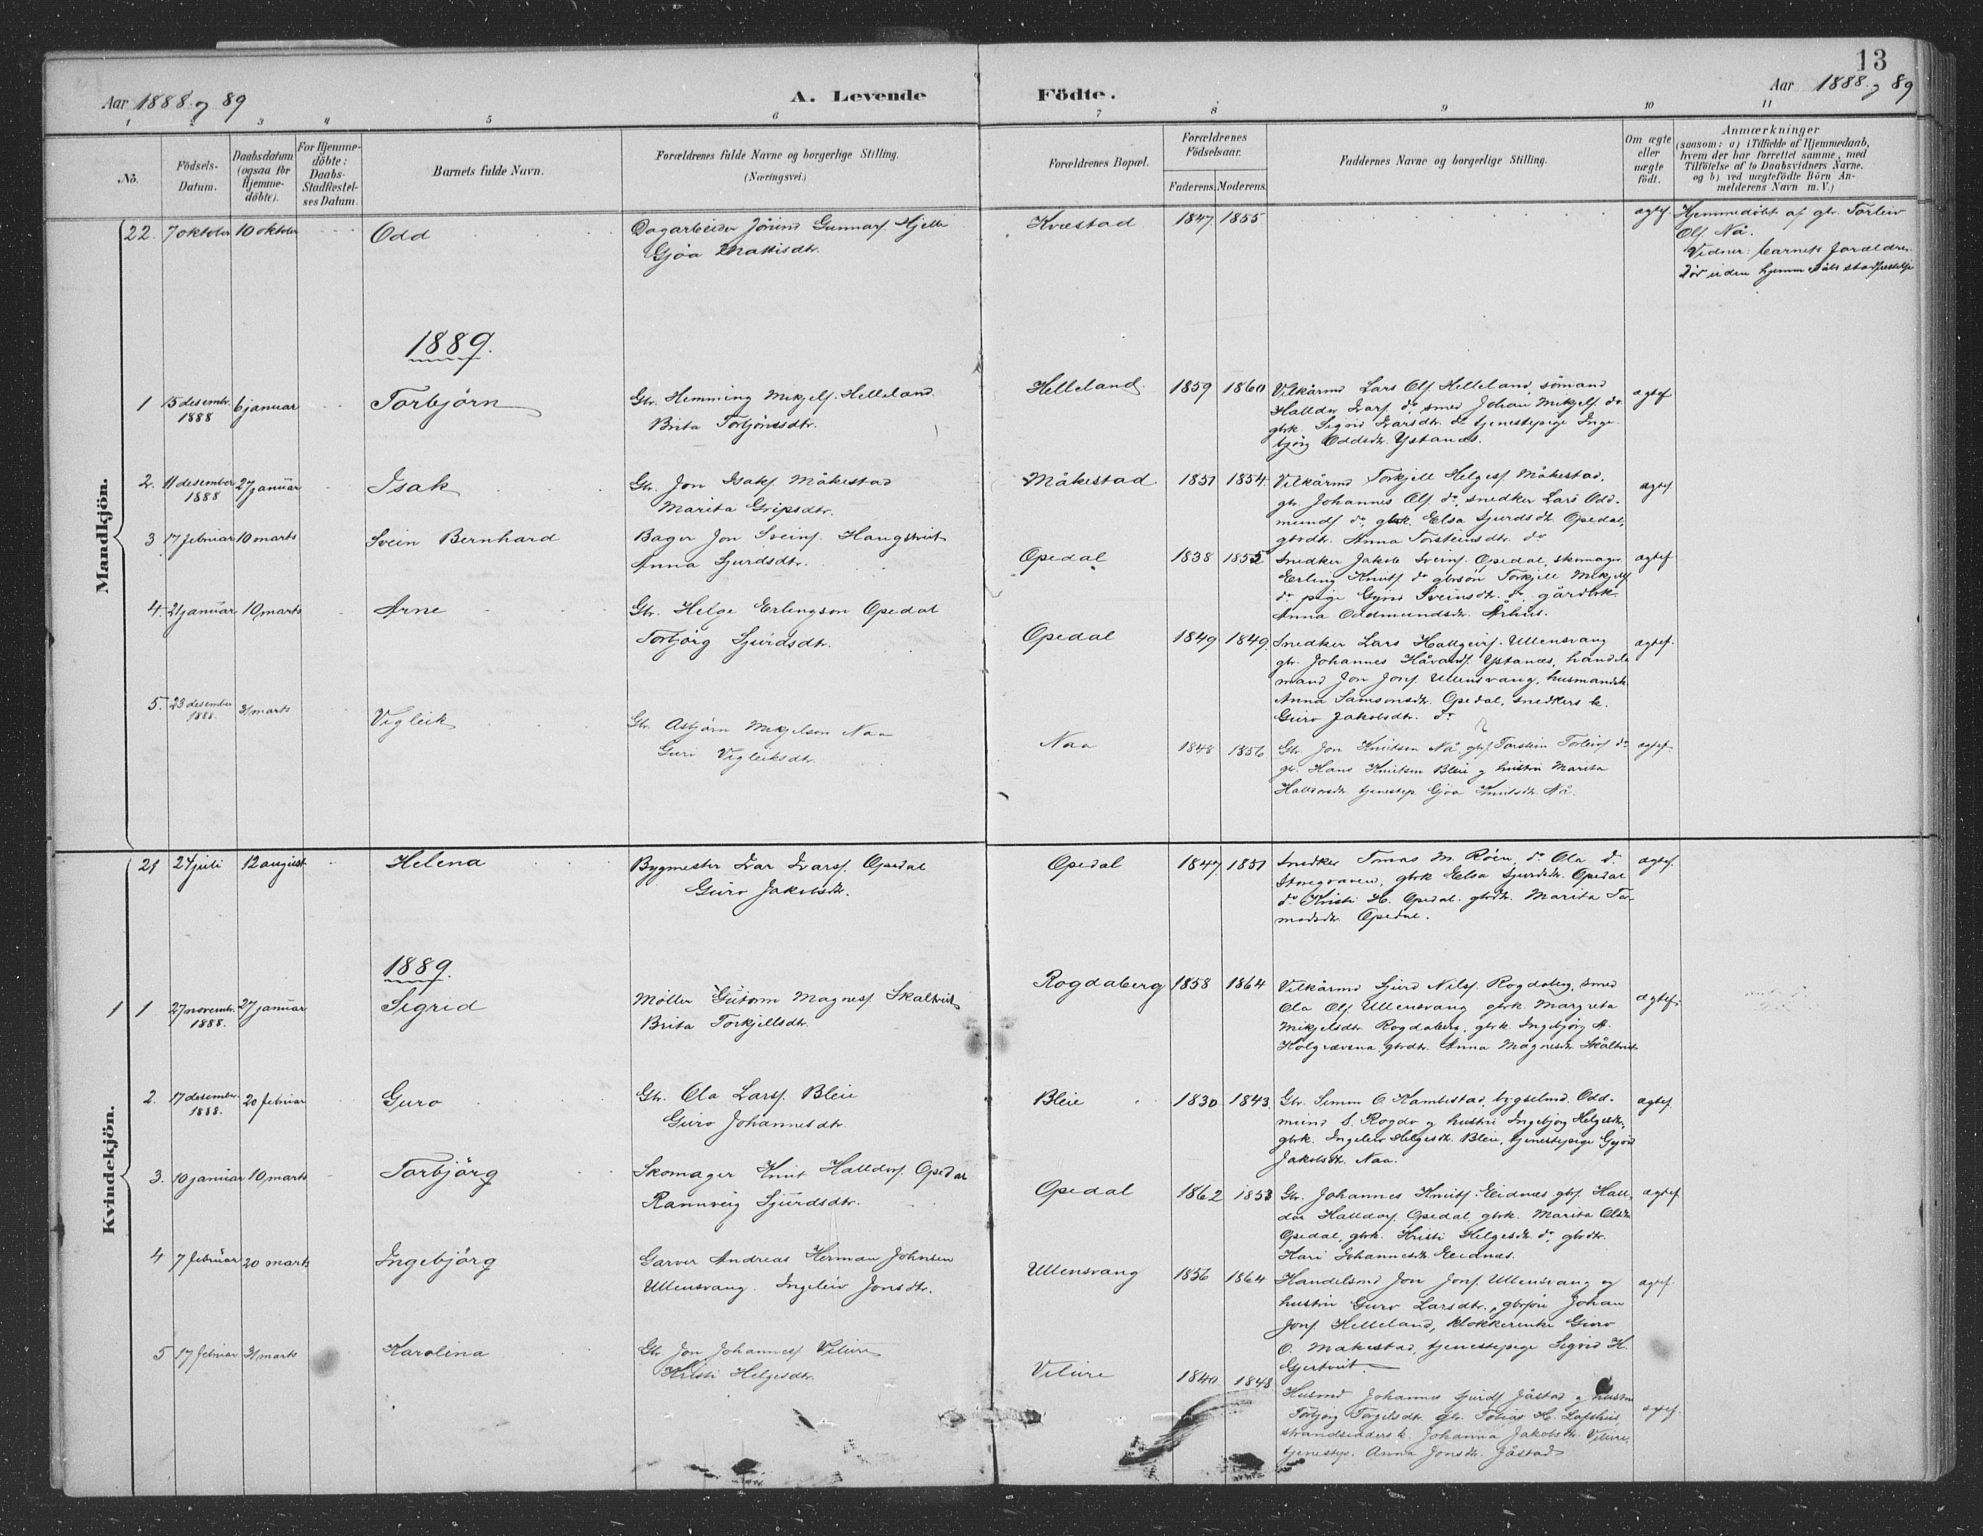 13
Aar 1888 og 89
A. Levende Födte.
Aar 1888 og 89
1 2 3 4 5 6 7 8 9 10 11
No.
Födsels-
Datum.
Daabsdatum
(ogsaa for
Hjemme-
döbte).
For Hjemme-
döbte:
Daabs-
Stadfæstel-
ses Datum.
Barnets fulde Navn.
Forældrenes fulde Navne og borgerlige Stilling.
(Næringsvei.)
Forældrenes Bopæl.
Forældrenes
Födselsaar.
Faderens. Moderens.
Faddernes Navne og borgerlige Stilling.
Om ægte
eller
uægte
födt.
Anmærkninger
(saasom: a) i Tilfælde af Hjemmedaab,
hvem der har forrettet samme, med
Tilföielse af to Daabsvidners Navne.
og b) ved uægtefödte Börn An-
melderens Navn m. V.)
Mandkjön.
22. 7 oktober 10 oktober Odd
Dagarbeider Jörund Gunnars. Hjelle
Gjöa Mattisdtr.
Kvæstad 1847 1855 ægtef.
Hjemmedöbt af gbr. Torleiv
Ols. Nå.
Vidner: barnets forældre.
Död uden hjemmedåbs stadfæstelse
1889.
1 15 desembr. 1888 6 januar Torbjörn
Gbr. Hemming Mikjels. Helleland
Brita Torbjörnsdtr.
Helleland. 1859 1860 ægtef
Vilkårmd Lars Ols. Helleland, sömand
Halldor Ivars. do smed Johan Mikjels. do
gbrk. Sigrid Ivarsdtr. do tjenestepige Inge-
björg Oddsdtr. Ystanæs.
2. 11 desember 1888 27 januar Isak
Gbr. Jon Isaks. Måkestad
Marita Gripsdtr.
Måkestad 1851 1854. ægtef
Vilkårmd Torkjell Helges. Måkestad,
gbr. Johannes Ols. do, snedker Lars Odd-
munds. do, gbrk. Elsa Sjurdsdtr. Opedal,
gbrdtr. Anna Torsteinsdtr. do
3 17 februar 10 marts Svein Bernhard
Bager Jon Sveins. Haugstveit
Anna Sjurdsdtr.
Opedal 1838 1855 ægtef.
Snedker Jakob Sveins. Opedal, skomager
Erling Knuts. do gbrsön Torkjell Mikjels.
do, pige Gyrid Sveinsdtr. do, gårdbrk.
Anna Oddmundsdtr. Århus.
4. 21 januar 10 marts Arne
Gbr. Helge Erlingson Opedal
Torbjörg Sjurdsdtr.
Opedal 1849 1849 ægtef.
Snedker Lars Hallgeirs. Ullensvang
gbr. Johannes Håvards. Ystanæs, handels-
mand Jon Jons. Ullensvang, husmandsk.
Anna Samsonsdtr. Opedal, snedkers k.
Guro Jakobsdtr. do
5. 23 desember 1888. 31 marts Vigleik
Gbr. Asbjörn Mikjelson Naa
Guri Vigleiksdtr.
Naa 1848 1856 ægtef.
Gbr. Jon Knudsen Nå, gbs. Torstein Torleivs. do
gbr. Hans Knutsen Bleie og hustru Marita
Hallvordsdtr. tjenestep. Gjöa Knutsdtr. Nå.
Kvindekjön.
21 24 juli 12 august Helena
Bygmester Ivar Ivars. Opedal
Guro Jakobsdtr.
Opedal 1847 1851 ægtef.
Snedker Tomas M. Röen, do Ola
gbrk Elsa Sjurdsdtr. Opedal
do Kristi H. Opedal. gbrdtr. Marita Tor-
modsdtr. Opedal.
1889.
1 1 27 novembr. 1888. 27 januar Sigrid
Möller Gutorm Magnes. Skaltveit
Brita Torkjellsdtr.
Rogdaberg 1858 1864 ægtef.
Vilkårmd Sjurd Nils. Rogdaberg, smed
Ola Ols. Ullensvang gbrk. Margreta
Mikjelsdtr. Rogdaberg, gbrk. Ingebjörg A.
gbrdtr. Anna Magnesdtr. Skåltveit
2. 17 desembr. 1888. 20 februar Guro
Gbr. Ola Lars. Bleie
Guro Johannesdtr.
Bleie 1830 1843 ægtef.
Gbr. Simon O Kambestad, bygselmd. Odd-
mund S. Rogde og hustru Ingebjörg Helgesdtr.,
gbrk. Ingeleiv Helgesdtr. Bleie, tjenestepige Gjöa
Jakobsdtr. Naa.
3. 10 januar 10 marts Torbjörg
Skomager Knut Halldors. Opedal
Rannveig Sjurdsdtr.
Opedal 1862 1853 ægtef.
Gbr. Johannes Knuts. Eidnæs, gbs. Hall-
dor Halldors. Opedal, gbrk. Marita Olsdtr.
Opedal, gbrk. Kristi Helgesdtr. do, gbrdtr.
Kari Johannesdtr. Eidnæs.
4 7 februar 20 marts Ingebjörg
Garver Andreas Herman Johnsen
Ullensvang. Ingeleiv Jonsdtr.
Ullensvang 1856 1864 ægtef.
Handelsmd Jon Jons. Ullensvang og
hustru Guro Larsdtr., gbrsön Johan
Jons. Helleland, klokkerenke Guro
O. Måkestad, tjenestepige Sigrid H.
Gjertveit.
5 17 februar 31 marts Karolina
Gbr. Jon Johannes. Vilure
Kristi Helgesdtr.
Vilure 1840 1848 ægtef.
Husmd Johannes Sjurds. Jåstad og hustru
Torbjörg Torgilsdtr. gbr. Tobias H. Lofthus,
strandsidders k. Johanna Jakobsdtr. Vilure,
tjenestep. Anna Jonsdtr. Jåstad